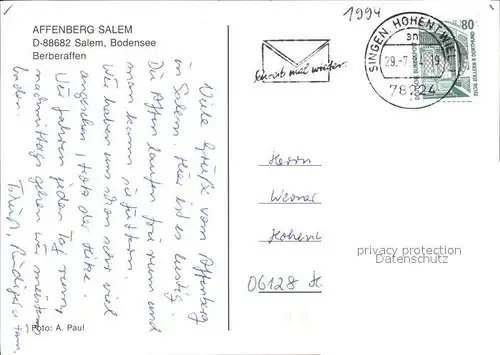 AFFENBERG SALEM
D-88682 Salem, Bodensee
Berberaffen
Viele Grüße vom Affenberg
in Salem. Hier ist es lustig.
Die Affen laufen frei rum und
man kann sie füttern.
Wir haben uns schon sehr viel
angesehen, trotz der Hitze.
Wir fahren jeden Tag rum,
nachmittags gehen wir meistens
baden.
Tschüß, Rüdiger u.
Foto: A. Paul
1994
SINGEN, HOHENTWIEL
an
29.-7.
78224
Schreib mal wieder.
80
DEUTSCHE BUNDESPOST
ZECHE ZOLLERN II DORTMUND
Herrn
Werner
Hohen
06128 H
privacy protection
Datenschutz